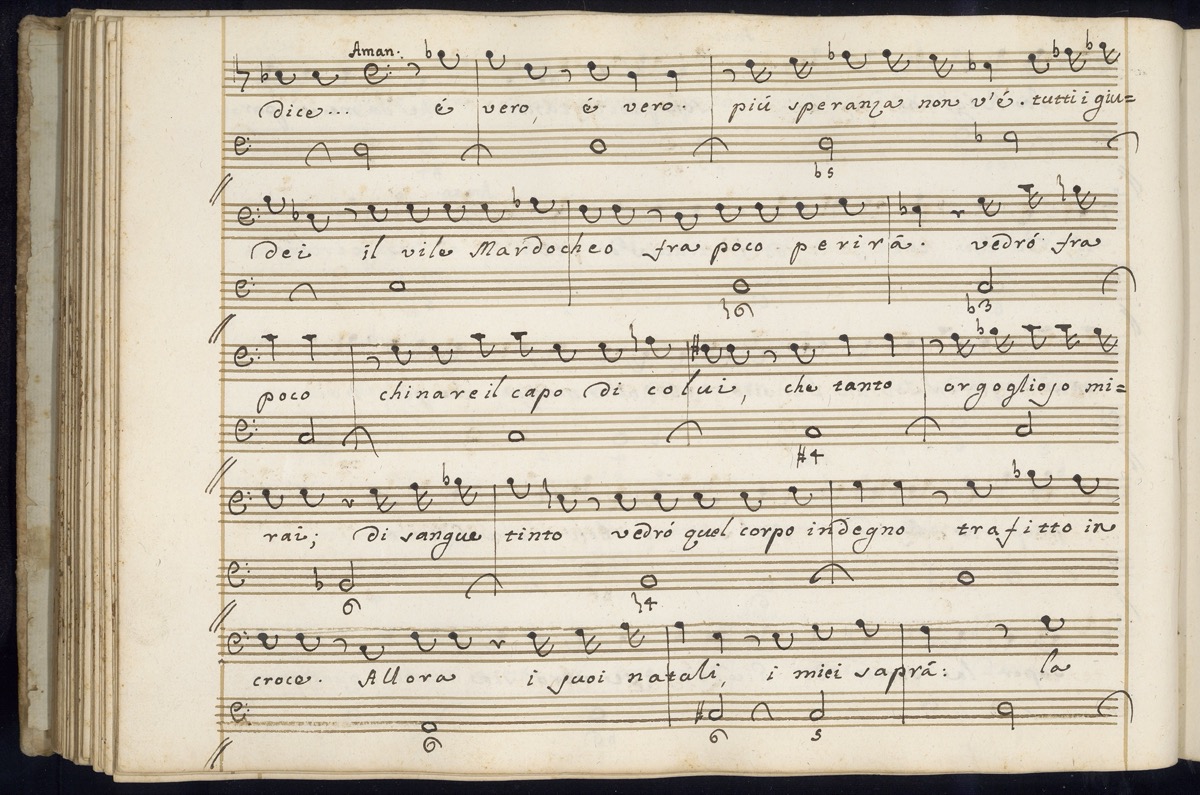 Aman:
dice... é vero, é vero. piú speranza non v'é. tutti i giu=
b5
dei il vile Mardocheo fra poco perirá. vedró fra
♮6 b3
poco chinare il capo di colui, che tanto orgoglioso mi=
#4
rai; di sangue tinto vedró quel corpo indegno trafitto in
6 ♮4
croce. Allora i suoi natali, i miei saprá: la
6 6 5